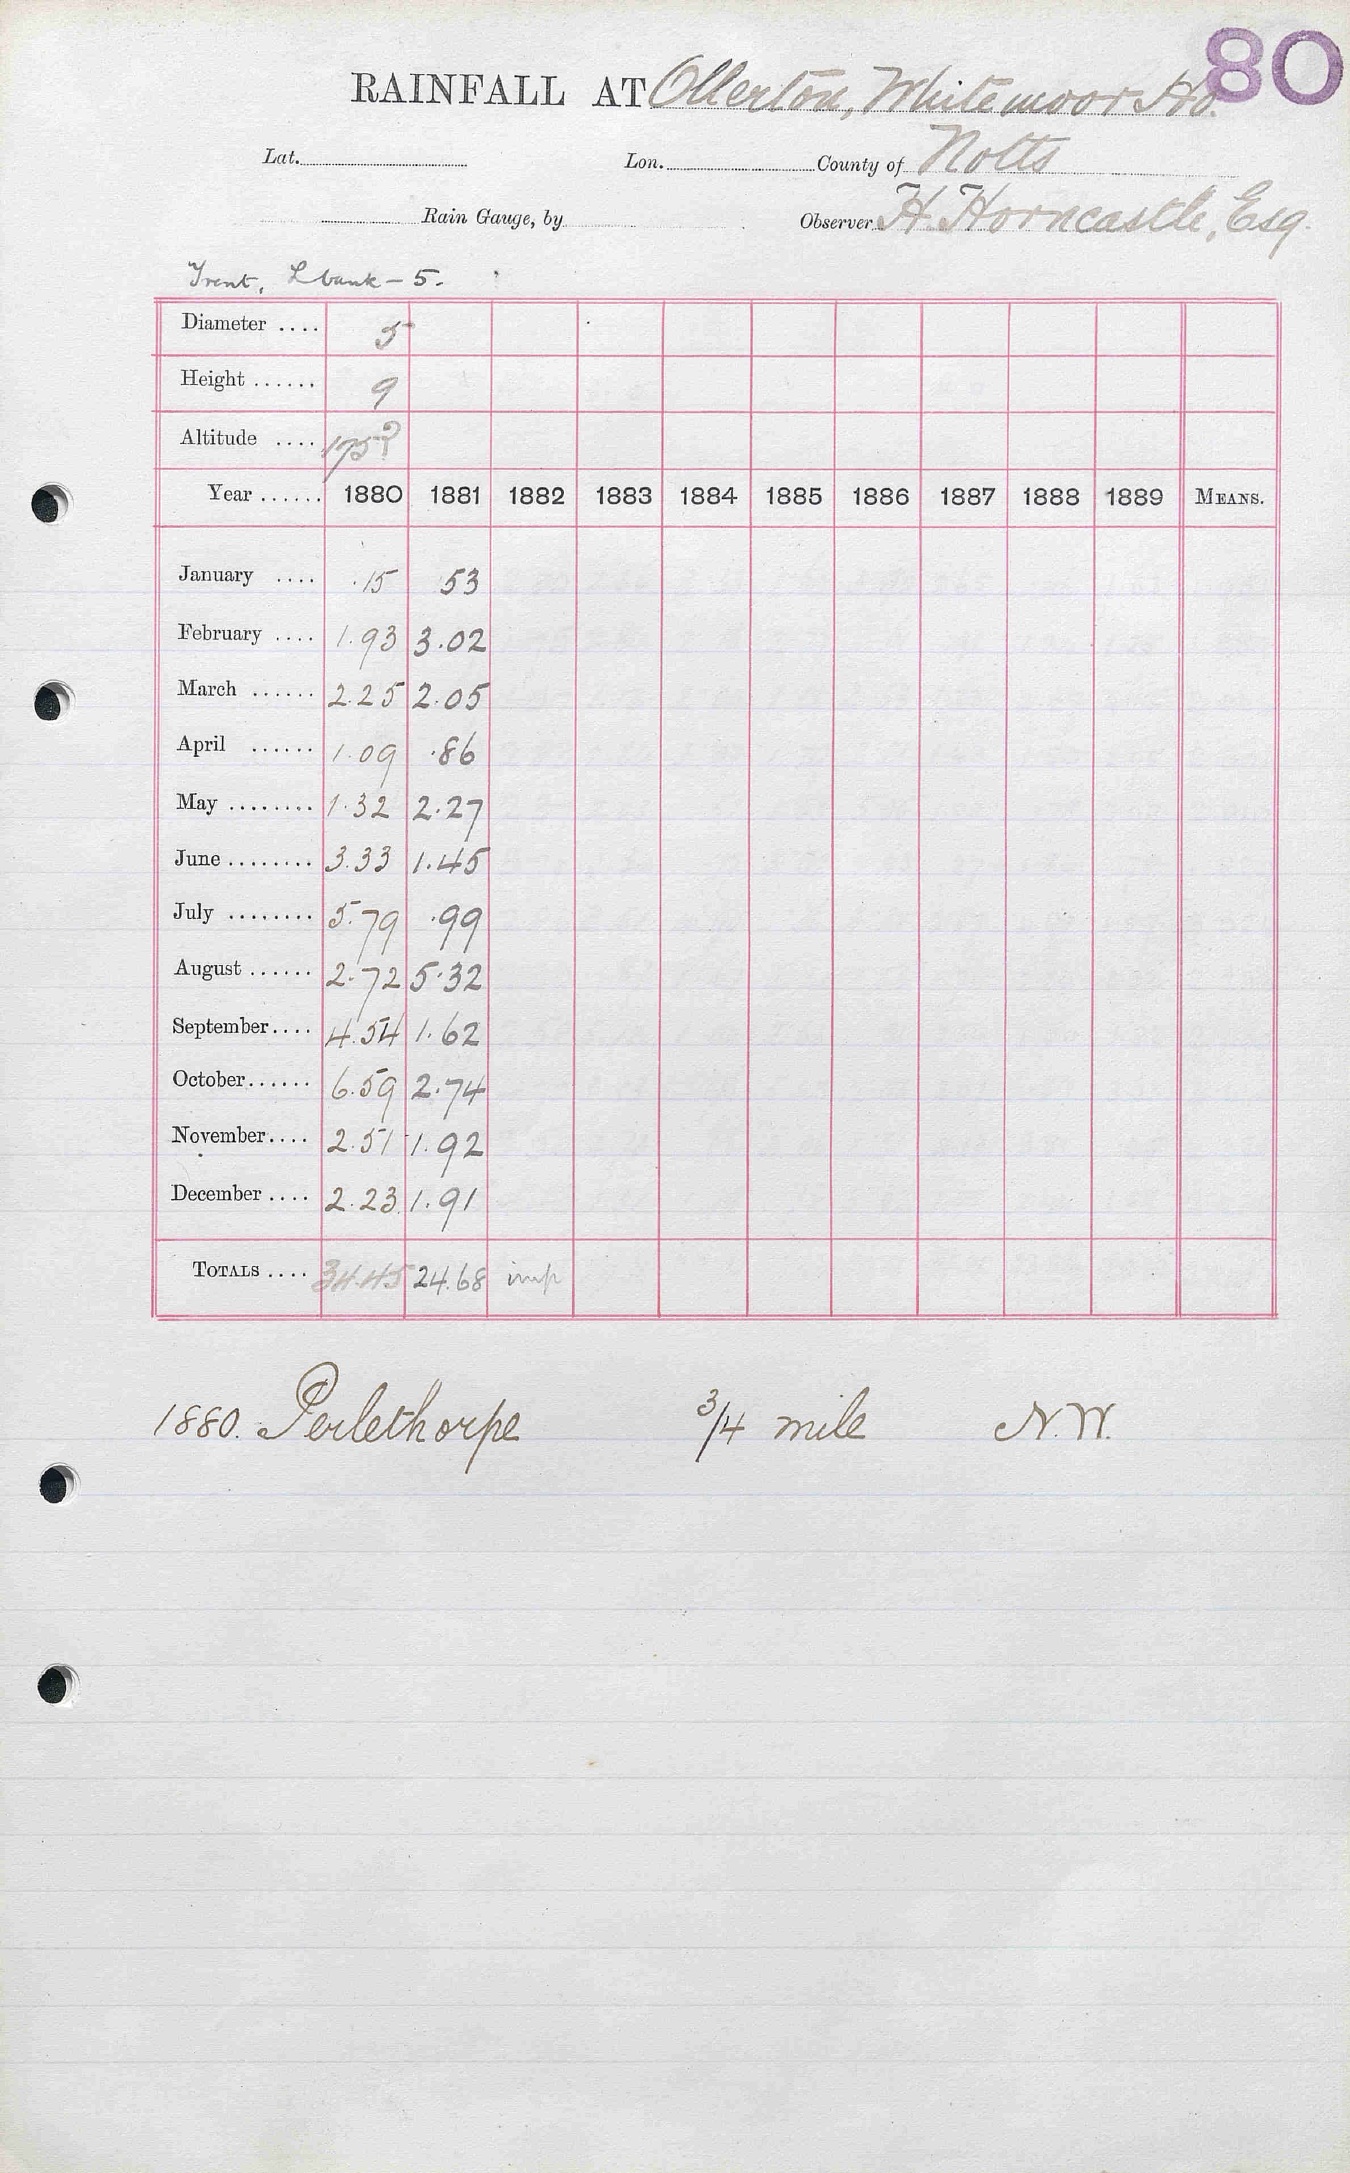 80
RAINFALL AT Ollerton, Whitemoor Ho.
Lat. Lon. County of Notts
Rain Gauge, by Observer H. Horncastle, Esq.
Trent, L bank - 5.
Diameter .... 5
Height ...... 9
Altitude .... 175?
Year ...... 1880 1881 1882 1883 1884 1885 1886 1887 1888 1889 MEANS.
January .... .15 .53
February .... 1.93 3.02
March ...... 2.25 2.05
April ...... 1.09 .86
May ........ 1.32 2.27
June ........ 3.33 1.45
July ........ 5.79 .99
August ...... 2.72 5.32
September.... 4.54 1.62
October...... 6.59 2.74
November.... 2.51 1.92
December .... 2.23 1.91
TOTALS .... 34.45 24.68 imp
1880. Perlethorpe 3/4 mile N.W.